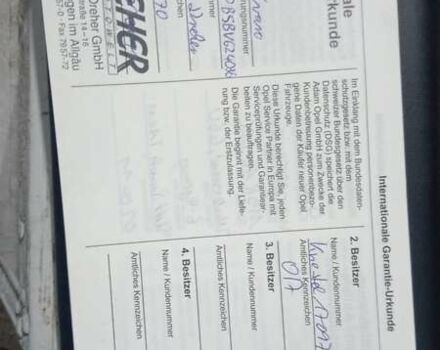 Internationale Garantie-Urkunde
ale
rkunde
Im Einklang mit dem Bundesdaten-
schutzgesetz bzw. mit dem
schweizer Bundesgesetz über den
Datenschutz (DSG) speichert die
Adam Opel GmbH zum Zwecke der
Kundenbetreuung personenbezo-
gene Daten der Käufer neuer Opel
Fahrzeuge.
Diese Urkunde berechtigt Sie, jeden
Opel Service Partner in Europa mit
Serviceprüfungen und Garantiear-
beiten zu beauftragen.
Die Garantie beginnt mit der Liefe-
rung bzw. der Erstzulassung.
2. Besitzer
Name / Kundennummer
Amtliches Kennzeichen
3. Besitzer
Name / Kundennummer
Amtliches Kennzeichen
4. Besitzer
Name / Kundennummer
Amtliches Kennzeichen
Dreher GmbH
straße 14-16
gen im Allgäu
57-0 • Fax 79 57-72
EHER
TOWELT